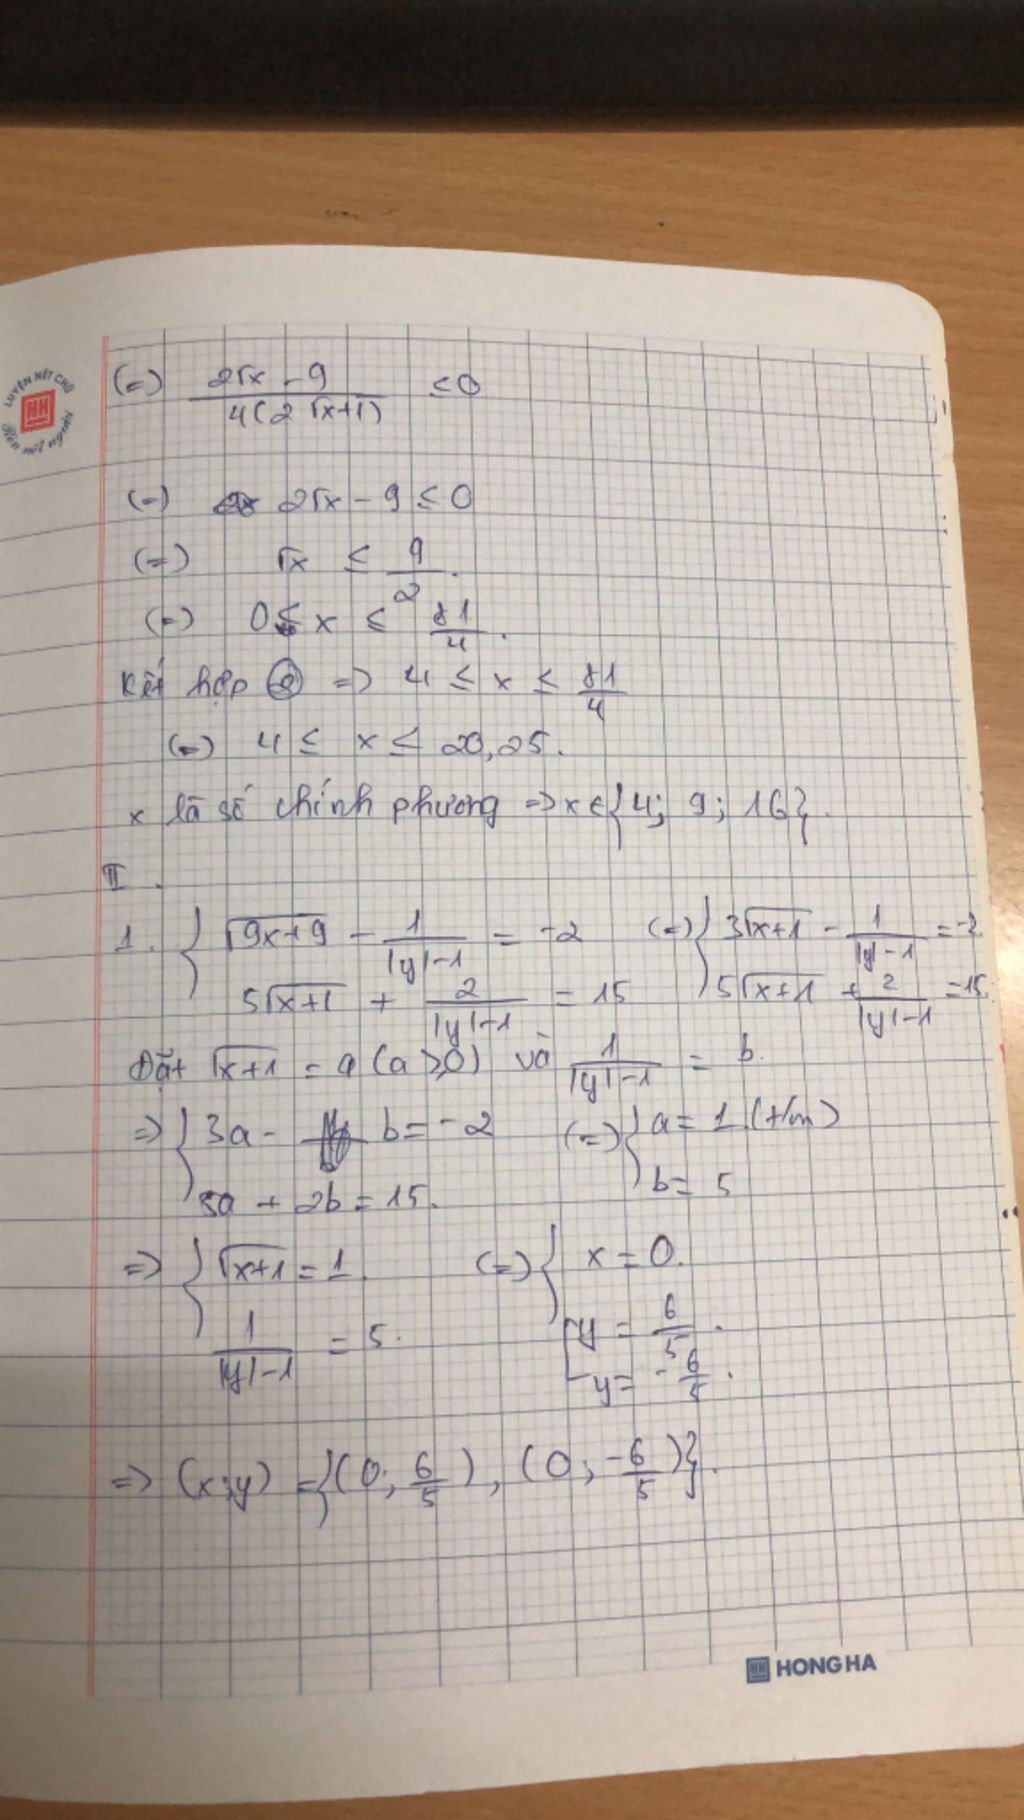 LUYỆN NÉT CHỮ
Rèn nết người
(=) (2√x - 9)/(4(2√x+1)) ≤ 0
(=) 2√x - 9 ≤ 0
(=) √x ≤ 9/2.
(=) 0 ≤ x ≤ 81/4.
Kết hợp => 4 ≤ x ≤ 81/4
(=) 4 ≤ x ≤ 20,25.
x là số chính phương => x ∈ {4; 9; 16}.
II.
1. { √(9x+9) - 1/(|y|-1) = -2 (=) { 3√(x+1) - 1/(|y|-1) = -2
5√(x+1) + 2/(|y|-1) = 15 5√(x+1) + 2/(|y|-1) = 15
Đặt √(x+1) = a (a ≥ 0) và 1/(|y|-1) = b.
=> { 3a - b = -2 (=) { a = 1 (t/m)
5a + 2b = 15. b = 5
=> { √(x+1) = 1 (=) { x = 0.
1/(|y|-1) = 5. [ y = 6/5.
y = -6/5.
=> (x;y) = {(0; 6/5), (0; -6/5)}.
HONG HA